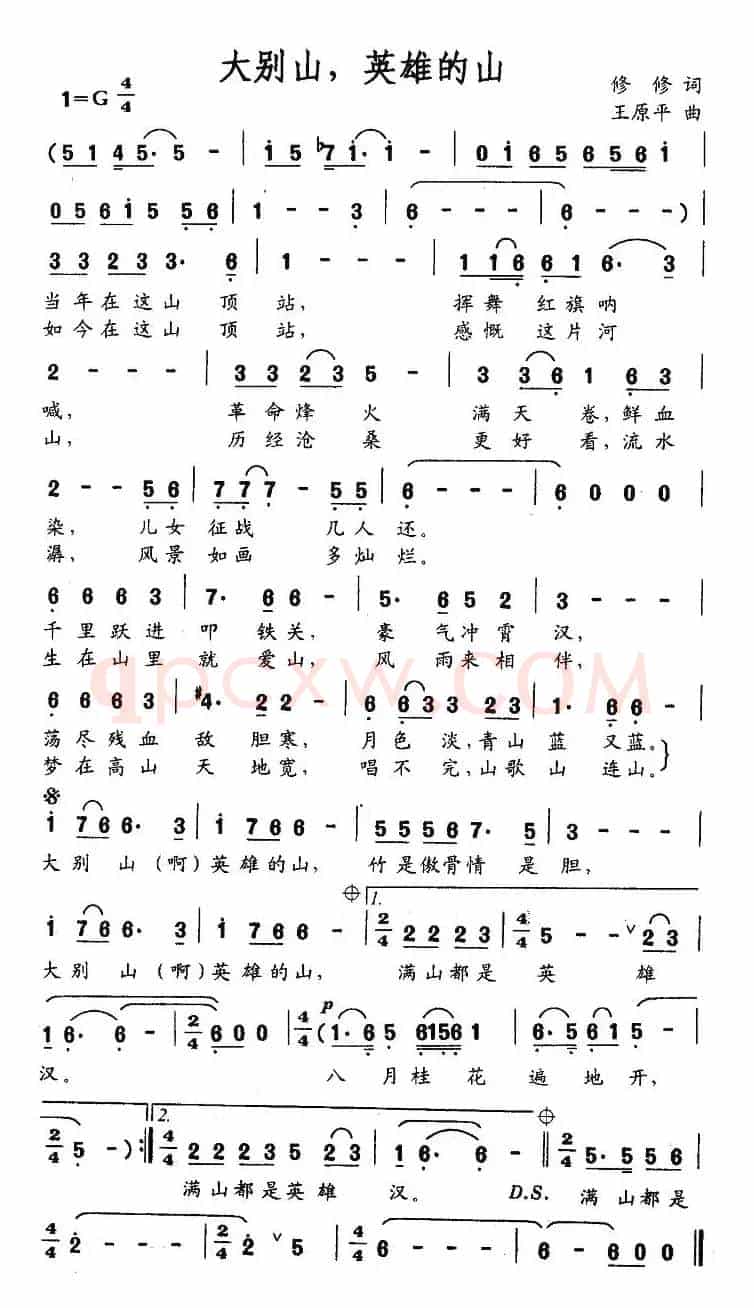 大别山，英雄的山
1=G 4/4
修 修 词
王原平 曲
(5 1 4 5· 5 - | i 5 ♭7 i· i - | 0 i 6 5 6 5 6 i |
0 5 6 i 5 5 6 | 1 - - 3 | 6 - - - | 6 - - ) |
3 3 2 3 3· 6 | 1 - - - | 1 1 6 6 1 6· 3 |
当年在这山 顶 站， 挥舞 红旗呐
如今在这山 顶 站， 感慨 这片河
2 - - - | 3 3 2 3 5 - | 3 3 6 1 6 3 |
喊， 革命烽 火 满 天 卷，鲜血
山， 历经沧 桑 更 好 看，流水
2 - - 5 6 | 7 7 7 - 5 5 | 6 - - - | 6 0 0 0 |
染， 儿女 征战 几人 还。
潺， 风景 如画 多灿 烂。
6 6 6 3 | 7· 6 6 - | 5· 6 5 2 | 3 - - - |
千里跃进 叩 铁关， 豪 气冲霄 汉，
生在山里 就 爱山， 风 雨来相 伴，
6 6 6 3 | #4· 2 2 - | 6 6 3 3 2 3 | 1· 6 6 - |
荡尽残血 敌 胆寒， 月色 淡，青山 蓝 又蓝。
梦在高山 天 地宽， 唱不 完，山歌 山 连山。
qpcxw.com
i 7 6 6· 3 | i 7 6 6 - | 5 5 5 6 7· 5 | 3 - - - |
大别 山（啊）英雄的山， 竹是傲骨情 是 胆，
1.
i 7 6 6· 3 | i 7 6 6 - | 2/4 2 2 2 3 | 4/4 5 - - 2 3 |
大别 山（啊）英雄的山， 满山都是 英 雄
p
1 6· 6 - | 2/4 6 0 0 | 4/4 (1· 6 5 6 1 5 6 1 | 6· 5 6 1 5 - |
汉。 八 月桂 花 遍 地 开，
2.
2/4 5 - ) :| 4/4 2 2 2 3 5 2 3 | 1 6· 6 - || 2/4 5· 5 5 6 |
满山都是英雄 汉。 D.S. 满 山都是
4/4 2 - - - | 2/4 2 5 | 4/4 6 - - - | 6 - 6 0 0 ||